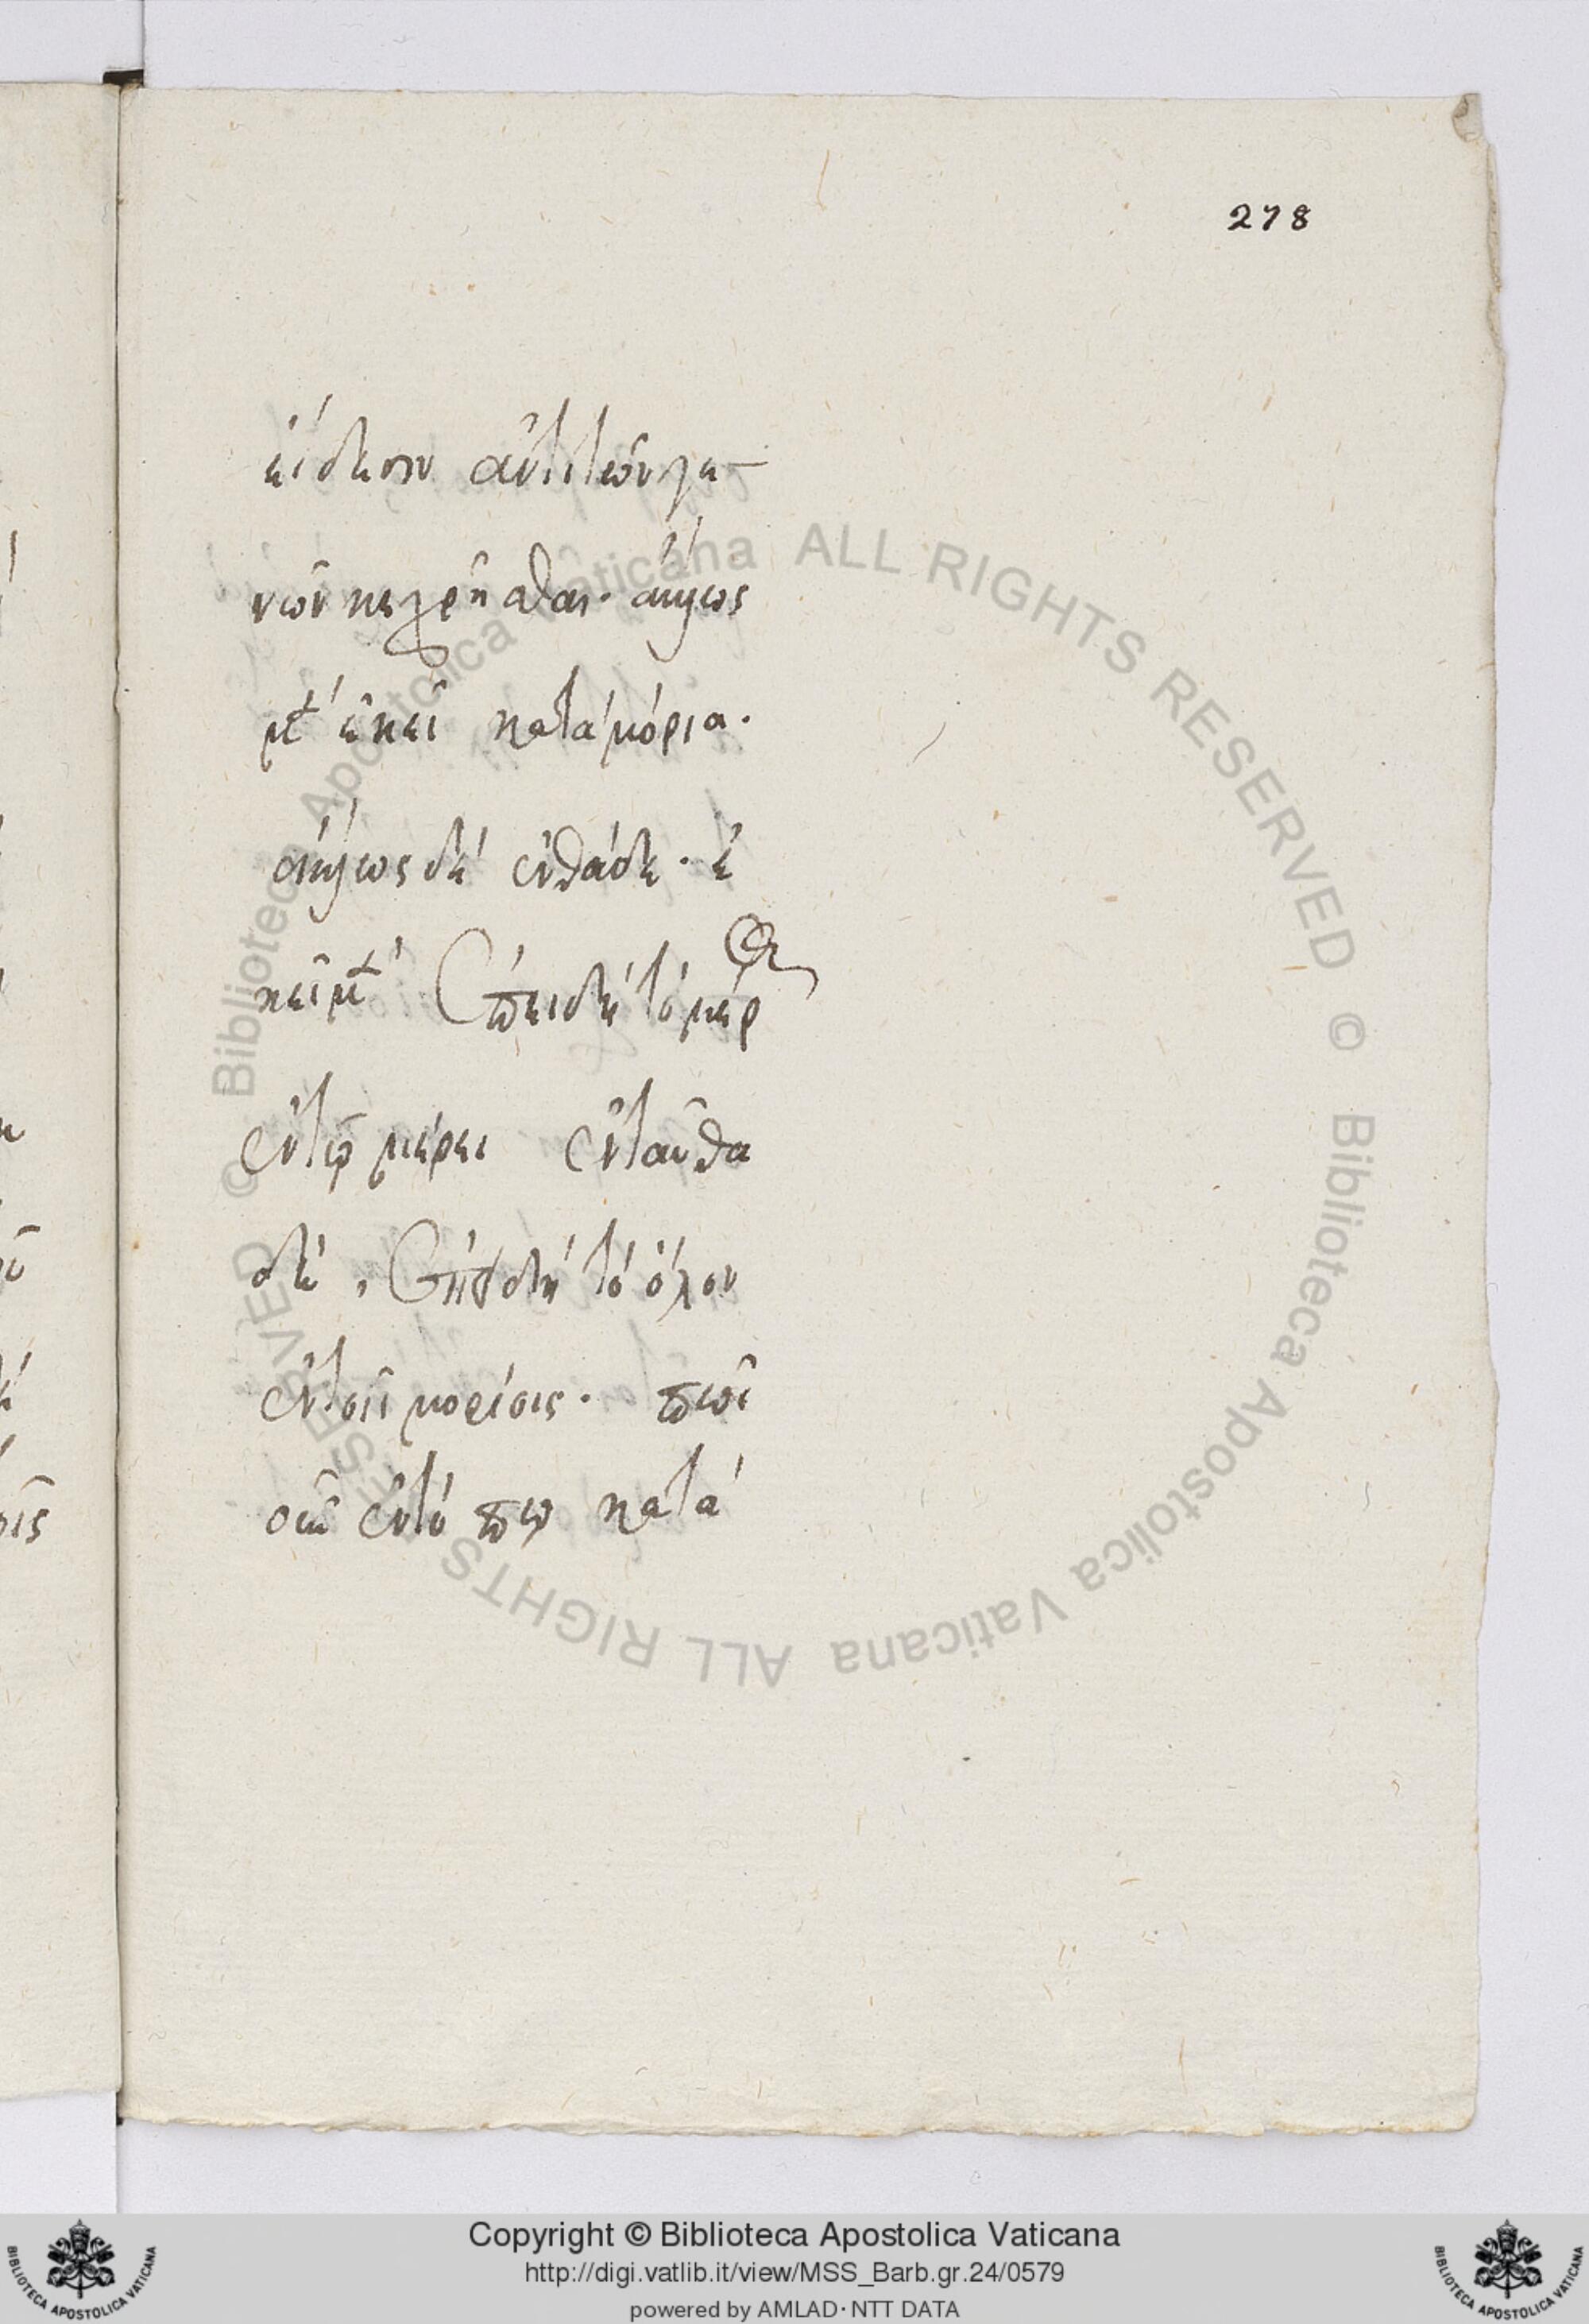 278
εἴδεσιν ἀντὶ τῶν γε-
νῶν κεχρῆσθαι. ἀμέσως
μὲν ἐκεῖ κατὰ μόρια.
ἀμέσως δὲ ἐνθάδε. ἐ
κεῖ μὲν ἐπειδὴ τὸ μέρος
ἐν τῷ μέρει ἐνταῦθα
δὲ, ἐπειδὴ τὸ ὅλον
ἐν τοῖ μορίοις.
οὖν ἐν τόπῳ κατὰ
Copyright © Biblioteca Apostolica Vaticana
http://digi.vatlib.it/view/MSS_Barb.gr.24/0579
powered by AMLAD·NTT DATA
© Biblioteca Apostolica Vaticana ALL RIGHTS RESERVED © Biblioteca Apostolica Vaticana ALL RIGHTS RESERVED
BIBLIOTECA APOSTOLICA VATICANA
BIBLIOTECA APOSTOLICA VATICANA